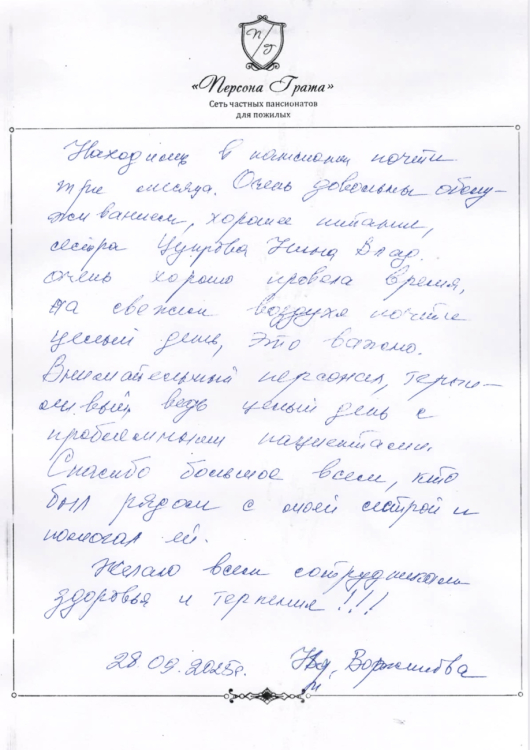 П Г
«Персона Грата»
Сеть частных пансионатов
для пожилых
Находились в пансионате почти
три месяца. Очень довольны обслу-
живанием, хорошее питание,
сестра Нина Влад.
очень хорошо провела время,
на свежем воздухе почти
целый день, это важно.
Внимательный персонал, терпе-
ливый, ведь целый день с
проблемными пациентами.
Спасибо большое всем, кто
был рядом с моей сестрой и
помогал ей.
Желаю всем сотрудникам
здоровья и терпения!!!
28 09. 2025г.